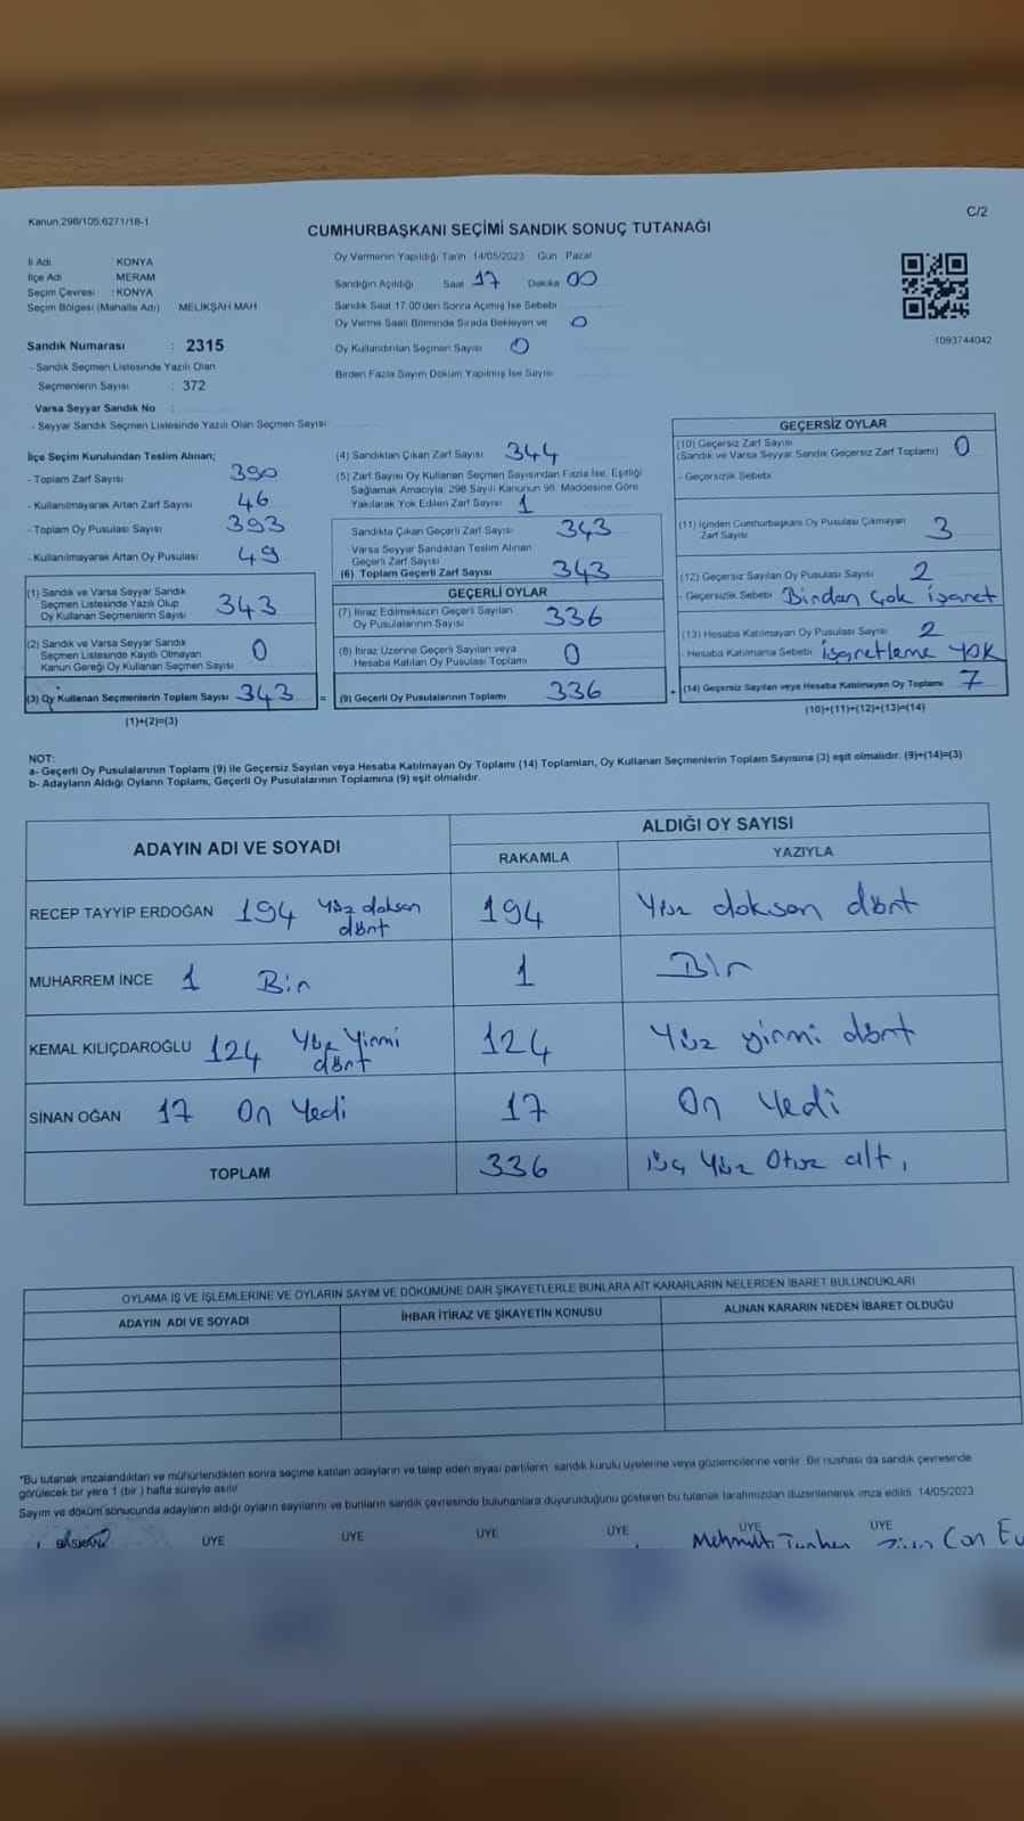 Kanun:298/105,6271/18-1
C/2
CUMHURBAŞKANI SEÇİMİ SANDIK SONUÇ TUTANAĞI
İl Adı : KONYA
İlçe Adı : MERAM
Seçim Çevresi : KONYA
Seçim Bölgesi (Mahalle Adı) : MELİKŞAH MAH
Sandık Numarası : 2315
- Sandık Seçmen Listesinde Yazılı Olan
Seçmenlerin Sayısı : 372
Varsa Seyyar Sandık No :
- Seyyar Sandık Seçmen Listesinde Yazılı Olan Seçmen Sayısı
Oy Vermenin Yapıldığı Tarih 14/05/2023 Gün Pazar
Sandığın Açıldığı Saat 17 Dakika 00
Sandık Saat 17:00'den Sonra Açılmış İse Sebebi
Oy Verme Saati Bitiminde Sırada Bekleyen ve 0
Oy Kullandırılan Seçmen Sayısı 0
Birden Fazla Sayım Döküm Yapılmış İse Sayısı
1093744042
İlçe Seçim Kurulundan Teslim Alınan;
- Toplam Zarf Sayısı 390
- Kullanılmayarak Artan Zarf Sayısı 46
- Toplam Oy Pusulası Sayısı 393
- Kullanılmayarak Artan Oy Pusulası 49
(1) Sandık ve Varsa Seyyar Sandık
Seçmen Listesinde Yazılı Olup
Oy Kullanan Seçmenlerin Sayısı 343
(2) Sandık ve Varsa Seyyar Sandık
Seçmen Listesinde Kayıtlı Olmayan
Kanun Gereği Oy Kullanan Seçmen Sayısı 0
(3) Oy Kullanan Seçmenlerin Toplam Sayısı 343
(1)+(2)=(3)
(4) Sandıktan Çıkan Zarf Sayısı 344
(5) Zarf Sayısı Oy Kullanan Seçmen Sayısından Fazla İse, Eşitliği
Sağlamak Amacıyla; 298 Sayılı Kanunun 98. Maddesine Göre
Yakılarak Yok Edilen Zarf Sayısı 1
Sandıkta Çıkan Geçerli Zarf Sayısı 343
Varsa Seyyar Sandıktan Teslim Alınan
Geçerli Zarf Sayısı
(6) Toplam Geçerli Zarf Sayısı 343
GEÇERLİ OYLAR
(7) İtiraz Edilmeksizin Geçerli Sayılan
Oy Pusulalarının Sayısı 336
(8) İtiraz Üzerine Geçerli Sayılan veya
Hesaba Katılan Oy Pusulası Toplamı 0
= (9) Geçerli Oy Pusulalarının Toplamı 336
GEÇERSİZ OYLAR
(10) Geçersiz Zarf Sayısı
(Sandık ve Varsa Seyyar Sandık Geçersiz Zarf Toplamı) 0
- Geçersizlik Sebebi
(11) İçinden Cumhurbaşkanı Oy Pusulası Çıkmayan
Zarf Sayısı 3
(12) Geçersiz Sayılan Oy Pusulası Sayısı 2
- Geçersizlik Sebebi Birdan çok işaret
(13) Hesaba Katılmayan Oy Pusulası Sayısı 2
- Hesaba Katılmama Sebebi işaretleme YOK
+ (14) Geçersiz Sayılan veya Hesaba Katılmayan Oy Toplamı 7
(10)+(11)+(12)+(13)=(14)
NOT:
a- Geçerli Oy Pusulalarının Toplamı (9) ile Geçersiz Sayılan veya Hesaba Katılmayan Oy Toplamı (14) Toplamları, Oy Kullanan Seçmenlerin Toplam Sayısına (3) eşit olmalıdır. (9)+(14)=(3)
b- Adayların Aldığı Oyların Toplamı, Geçerli Oy Pusulalarının Toplamına (9) eşit olmalıdır.
ADAYIN ADI VE SOYADI
ALDIĞI OY SAYISI
RAKAMLA YAZIYLA
RECEP TAYYİP ERDOĞAN 194 Yüz doksan dört 194 Yüz doksan dört
MUHARREM İNCE 1 Bir 1 Bir
KEMAL KILIÇDAROĞLU 124 Yüz Yirmi dört 124 Yüz yirmi dört
SİNAN OĞAN 17 On Yedi 17 On Yedi
TOPLAM 336 üç Yüz Otuz altı
OYLAMA İŞ VE İŞLEMLERİNE VE OYLARIN SAYIM VE DÖKÜMÜNE DAİR ŞİKAYETLERLE BUNLARA AİT KARARLARIN NELERDEN İBARET BULUNDUKLARI
ADAYIN ADI VE SOYADI İHBAR İTİRAZ VE ŞİKAYETİN KONUSU ALINAN KARARIN NEDEN İBARET OLDUĞU
*Bu tutanak imzalandıktan ve mühürlendikten sonra seçime katılan adayların ve talep eden siyasi partilerin sandık kurulu üyelerine veya gözlemcilerine verilir. Bir nüshası da sandık çevresinde
görülecek bir yere 1 (bir ) hafta süreyle asılır.
Sayım ve döküm sonucunda adayların aldığı oyların sayılarını ve bunların sandık çevresinde bulunanlara duyurulduğunu gösteren bu tutanak tarafımızdan düzenlenerek imza edildi. 14/05/2023
BAŞKAN ÜYE ÜYE ÜYE ÜYE ÜYE ÜYE
Mehmet Can